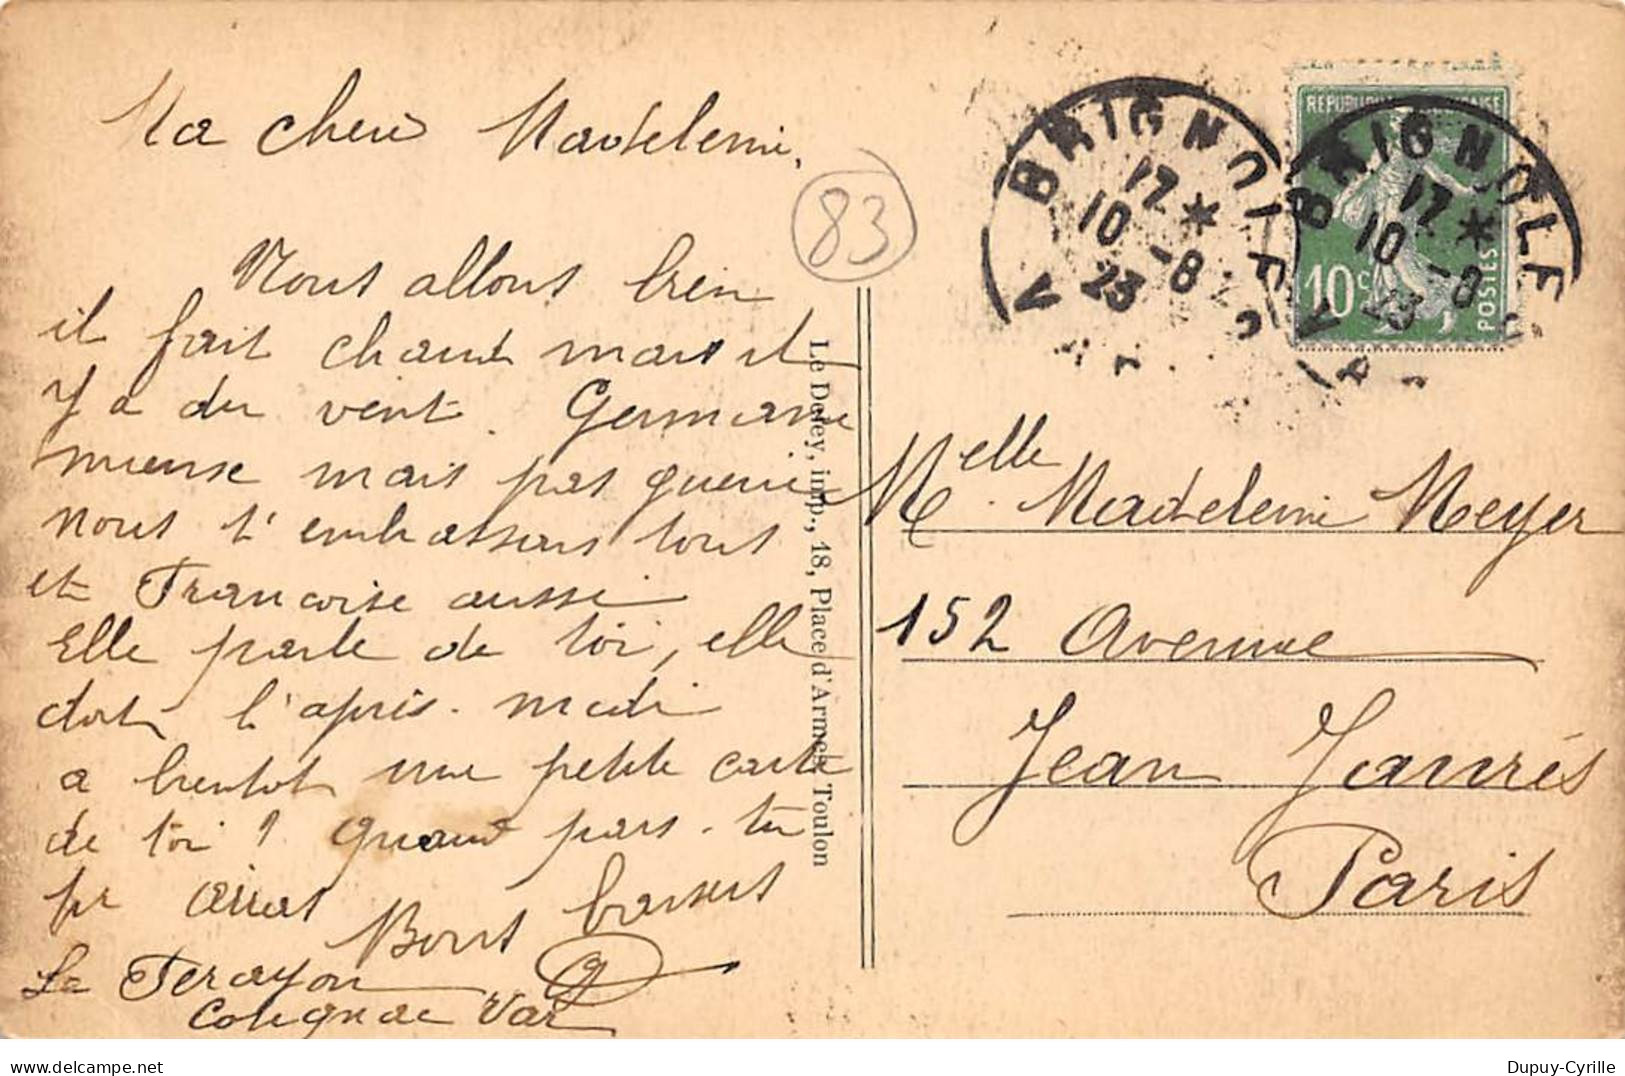 Ma cherie Madeleine,
Nous allons bien
il fait chaud mais il
y a du vent. Germaine
mieuse mais pas guerrie
nous t'embrassons tous
et Francoise aussi
Elle parle de toi, elle
dort l'après-midi
a bientot une petite carte
de toi ? Quand pars-tu
pr
Bons baisers
Le Terayon
Cotignac Var
83
Le Deley, imp., 18, Place d'Armes Toulon
BRIGNOLES
17 *
10 -8
23
VAR
BRIGNOLES
17 *
10 -8
23
VAR
REPUBLIQUE FRANÇAISE
10c
POSTES
Melle. Madeleine Meyer
152 Avenue
Jean Jaurés
Paris
Dupuy-Cyrille